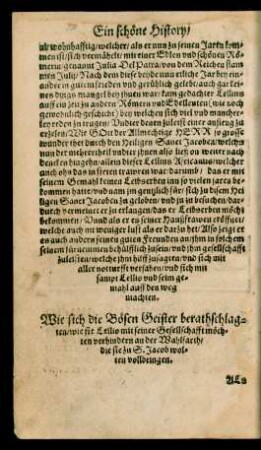 Ein schöne History/
wohnhafftig/welcher/als er nun zu seinen Jaren kom-
men ist/sich vermähelt/mit einer Edlen vnd schönen Rö-
merin/genannt Julia. von dem Reiches stam-
men Julij/Nach dem diese beide nun etliche Jar bey ein-
ander in gutem frieden vnd gerüblich gelebt/auch gar kei-
nes dings mangel bey ihnen war/kam gedachter Lelius
auff ein zeit zu andern Römern vnd Edelleuten/(wie noch
gewonlich geschicht) bey welchen sich viel vnd mancher-
ley reden zu trugen/Vnder denen zuletst einer anfieng zu
erzelen/Wie GOtt der Allmechtige HERR so grosse
wunder thet durch den Heiligen Sanct Jacob
welcher
auch ohn das in tieffen trawren war darumb/das er mit
seinem Gemahl keinen Leibserben inn so vielen jaren be-
kommen hatte/vnd nam jm gentzlich für/sich zu disem Hei-
ligen Sanct Jacoben zu geloben/vnd jn zu besuchen/dar-
durch vermeinet er zu erlangen/das er Leibserben möcht
bekommen/Vnnd als er es seiner Haußfrawen eröffnet/
welche auch nit weniger lust als er darzu het/Also zeigt er
es auch andern seinen guten freunden an/ihn in solchem
seinem fürnemmen behülfflich zu sein/vnd jhm gesellschafft
zuleisten/welche jhm hilff zusagten/vnd sich mit
aller notturfft versahen/vnd sich mit
sampt Lelio vnd seim ge-
mahl auff den weg
machten.
Wie sich die Bösen Geister berathschlag-
ten/wie sie Lelio mit seiner Gesellschafft möch-
ten verhindern an der Wahlfarth/
die sie zu S. Jacob wol-
ten volbringen.
Als